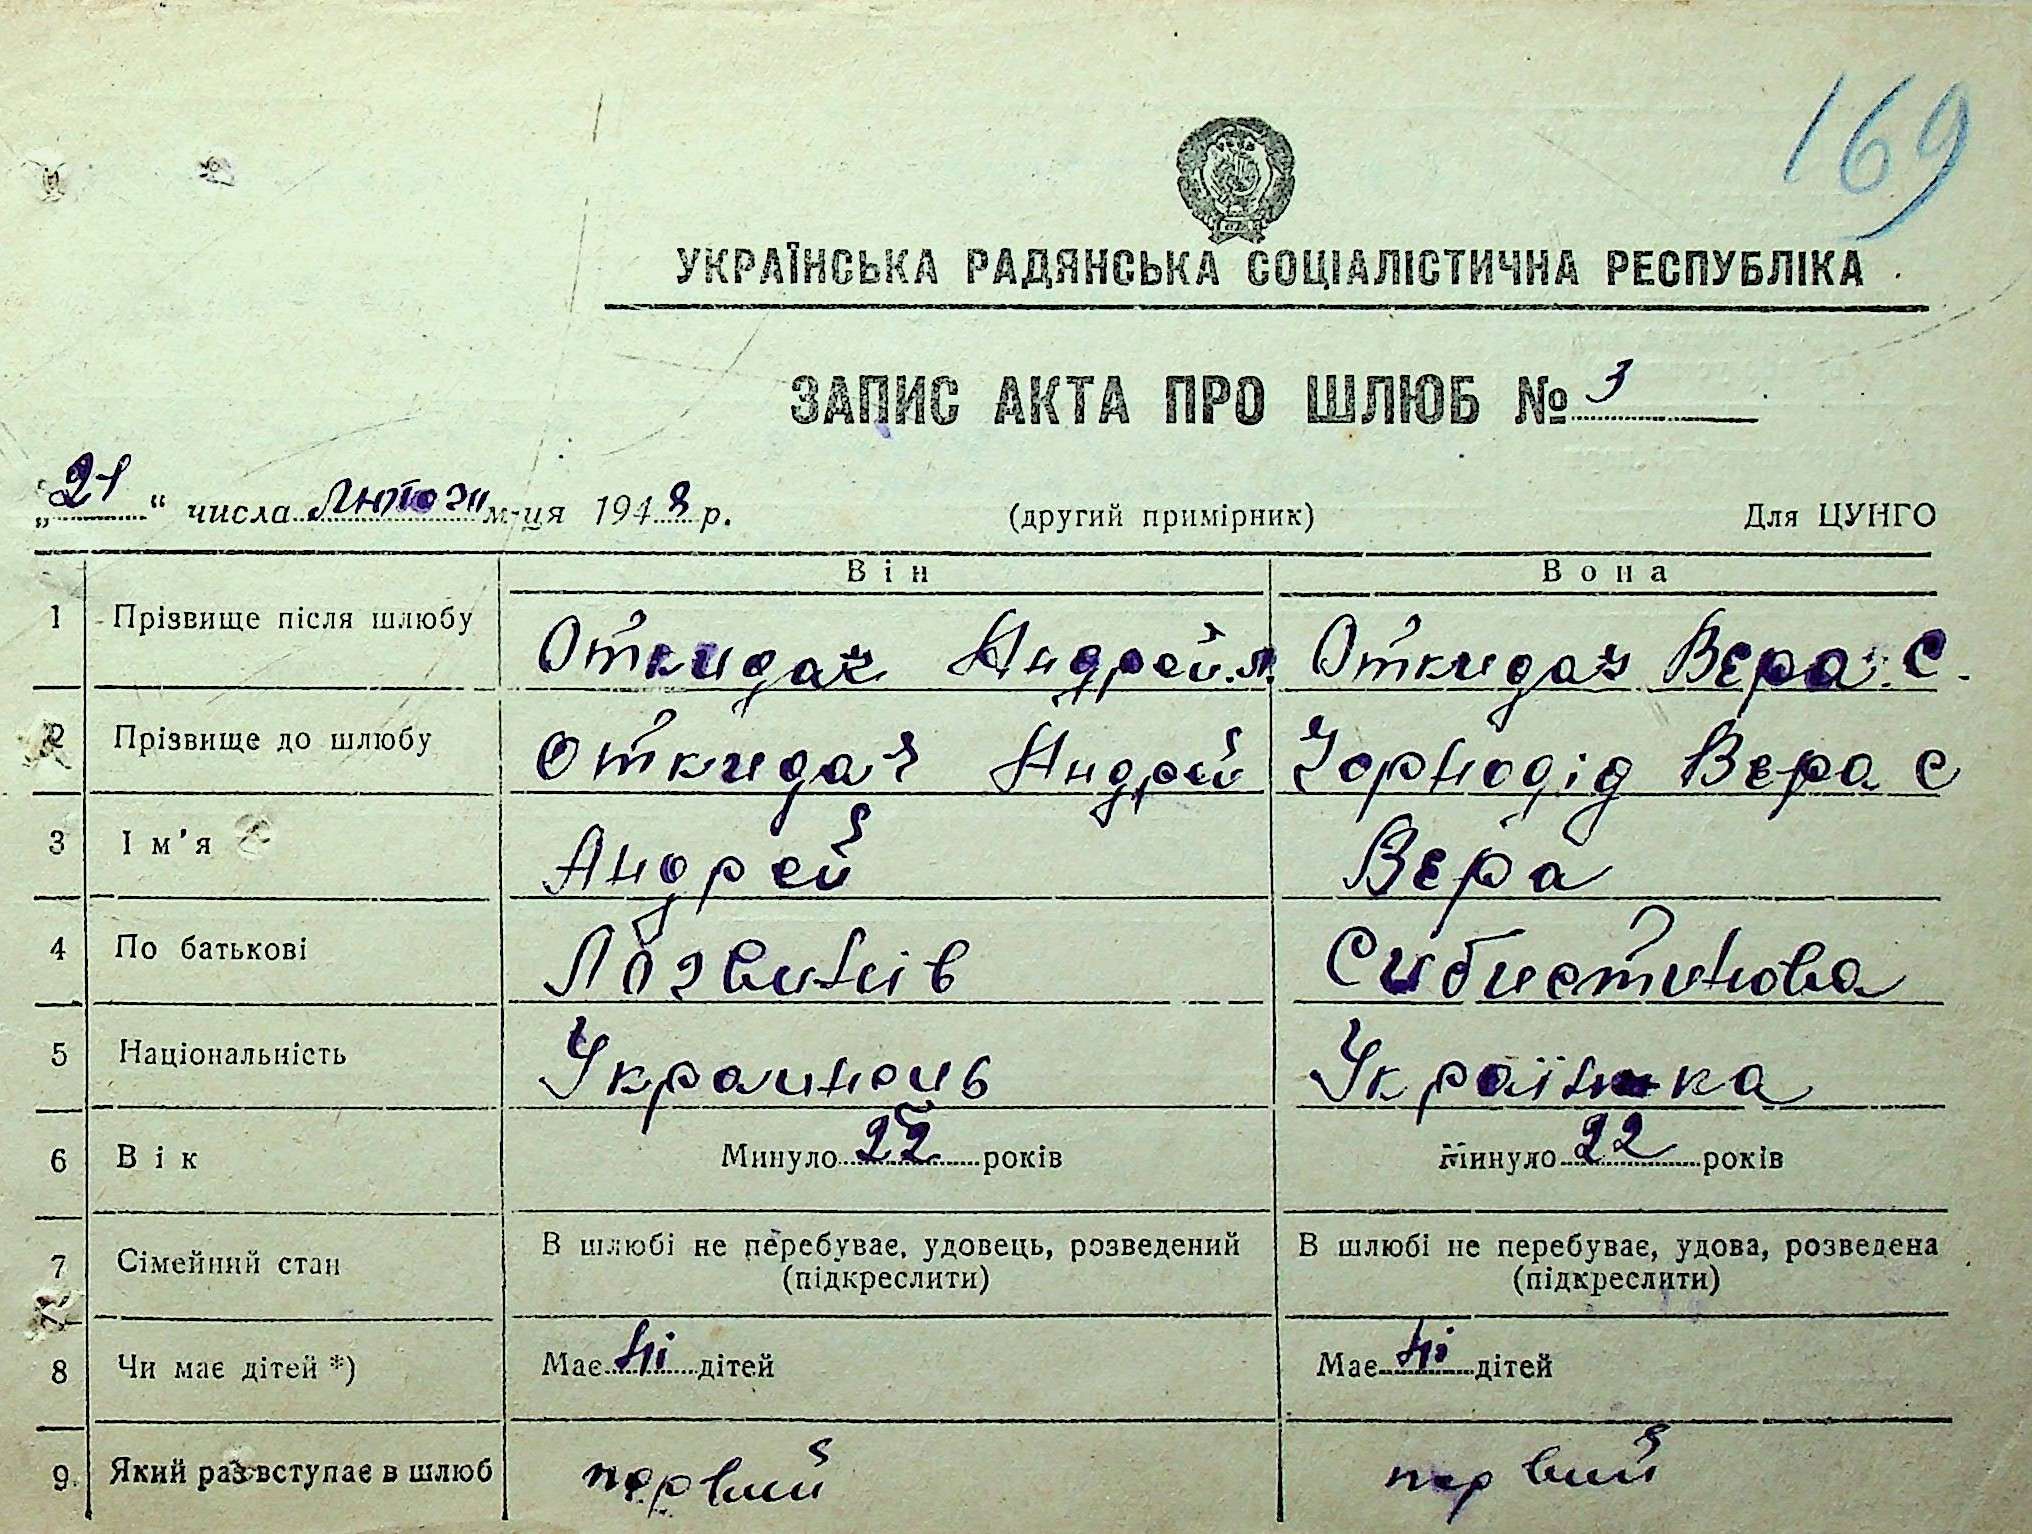 169
УКРАЇНСЬКА РАДЯНСЬКА СОЦІАЛІСТИЧНА РЕСПУБЛІКА
ЗАПИС АКТА ПРО ШЛЮБ № 3
„21“ числа м-ця 1948 р. (другий примірник) Для ЦУНГО
Він Вона
1 Прізвище після шлюбу Откидач Андрей.л. Откидач Вера. С.
2 Прізвище до шлюбу Откидач Андрей Чорнодід Вера С
3 Ім'я Андрей Вера
4 По батькові Логвинів Сибистинова
5 Національність Украинець Українка
6 Вік Минуло 22 років Минуло 22 років
7 Сімейний стан В шлюбі не перебуває, удовець, розведений В шлюбі не перебуває, удова, розведена
(підкреслити) (підкреслити)
8 Чи має дітей *) Має ні дітей Має ні дітей
9. Який раз вступає в шлюб первий первий